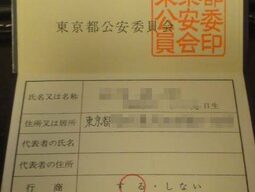 東京都公安委員会
東京都公安委員会印
氏名又は名称
日生
住所又は居所 東京都
代表者の氏名
代表者の住所
行商 する・しない